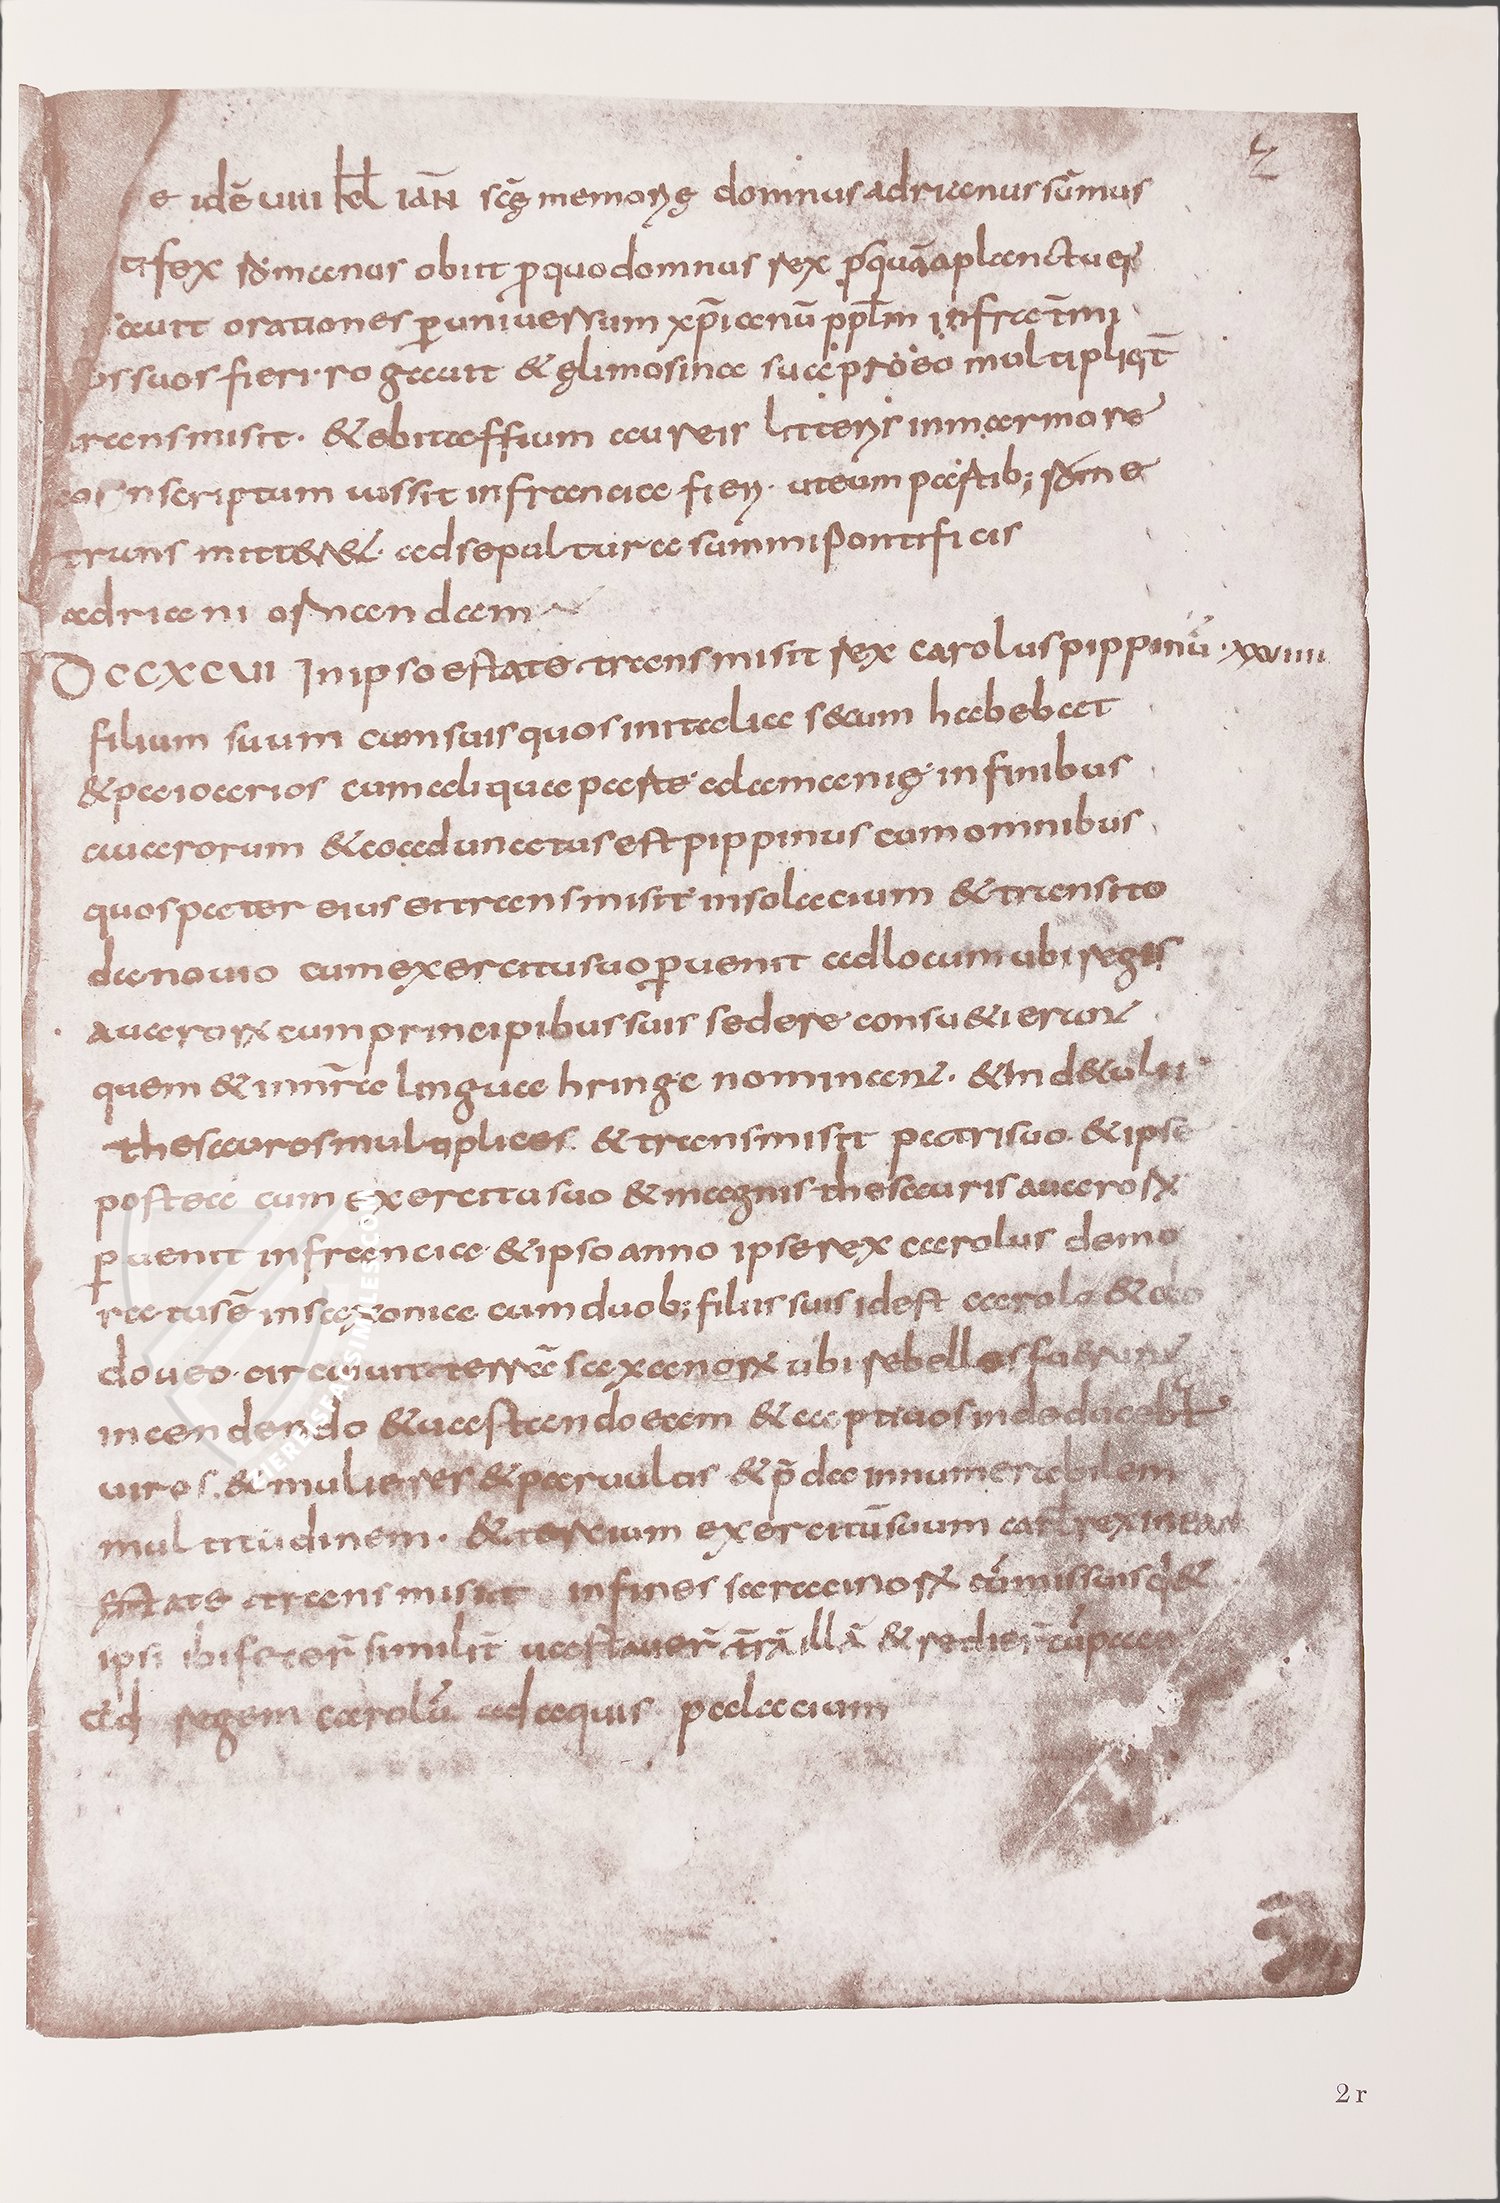 2
e idē uiii kł iaN scę memorię domnus adrianus sūmus
tifex romanus obiit pro quo domnus rex postquā a planctu ei
cessauit orationes per uniuersum xp̄ianū pplm infra t̄mi
nos suos fieri rogauit & elimosina sua pro eo multiplicit̄
transmisit. & ebitaffium aureis literis in marmore
conscriptum iussit in francia fieri. ut eum partib; rome
transmitteret. ad sepultura summi pontificis
adriani ornandam
DCCXCVI In ipso estate transmisit rex carolus pippinū · xxviiii
filium suum cum suis quos in italia secum habebat
& paioarios cum aliqua parte alamanię in finibus
auarorum & coadunatus est pippinus cum omnibus
quos pater eius ei transmisit in solacium & transito
danouio cum exercitu suo peruenit ad locum ubi regis
auarorum cum principibus suis sedere consueti erant
quem & in nr̄a lingua hringe nominant. & Inde tulit
thesauros multiplices. & transmisit patri suo. & ipse
postea cum exercitu suo & magnis thesauris auarorum
peruenit in francia & ipso anno ipse rex carolus demo
ratus ē in saxonia cum duob; filiis suis id est carolo & clo
doueo. circuiuit terrā saxanorum ubi rebelles fuerunt
incendendo & uastando eam & captiuos inde ducebat
uiros. & mulieres & paruulos & p̄da innumerabilem
multitudinem. & tertium exercitū suum carl rex in ean
estate transmisit in fines sarracinorum cū missis suis q &
ipsi ibi fecer̄ similit̄ uastauer̄ t̄rā illā & redier̄ cū pace
ad regem carolū ad aquis palacium
ZIEREISFACSIMILES.COM
2 r